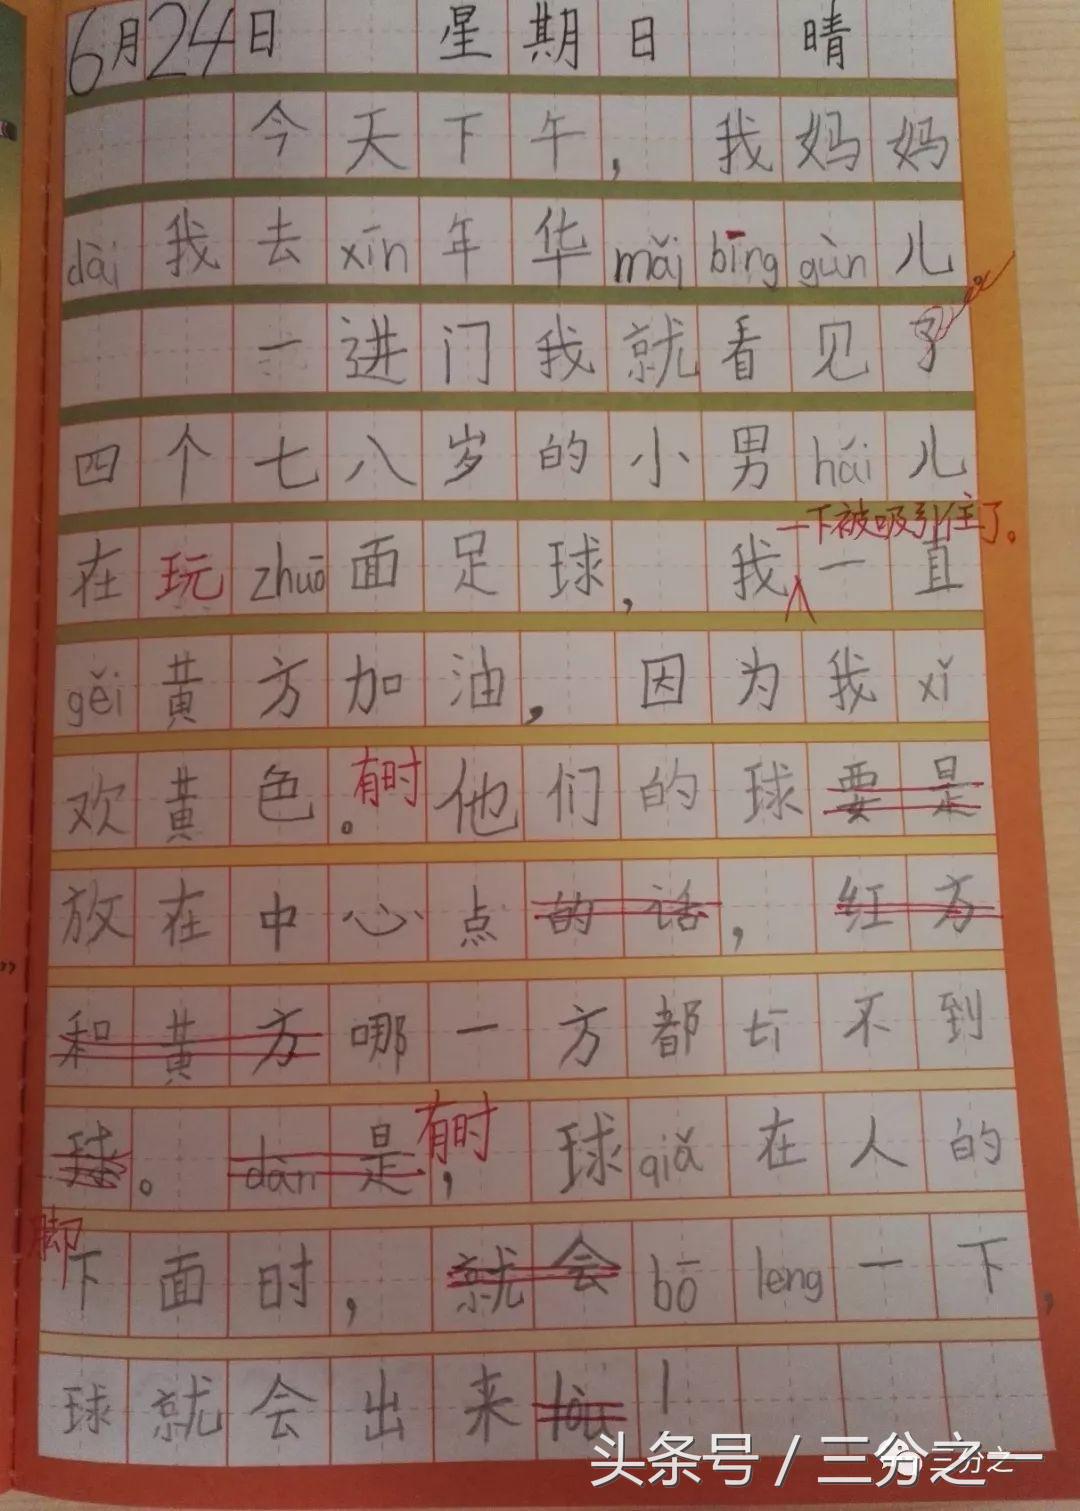 6月24日 星期日 晴
今天下午，我妈妈
dài我去xīn年华mǎi bīng gùn儿
一进门我就看见了
四个七八岁的小男hái儿
一下被吸引住了。
在玩zhuō面足球，我一直
gěi黄方加油，因为我xǐ
欢黄色。有时他们的球要是
放在中心点的话，红方
和黄方哪一方都tī不到
球。dàn是，有时球qiǎ在人的
脚下面时，就会bō leng一下，
球就会出来lou
头条号 / 三分之一
三分之一